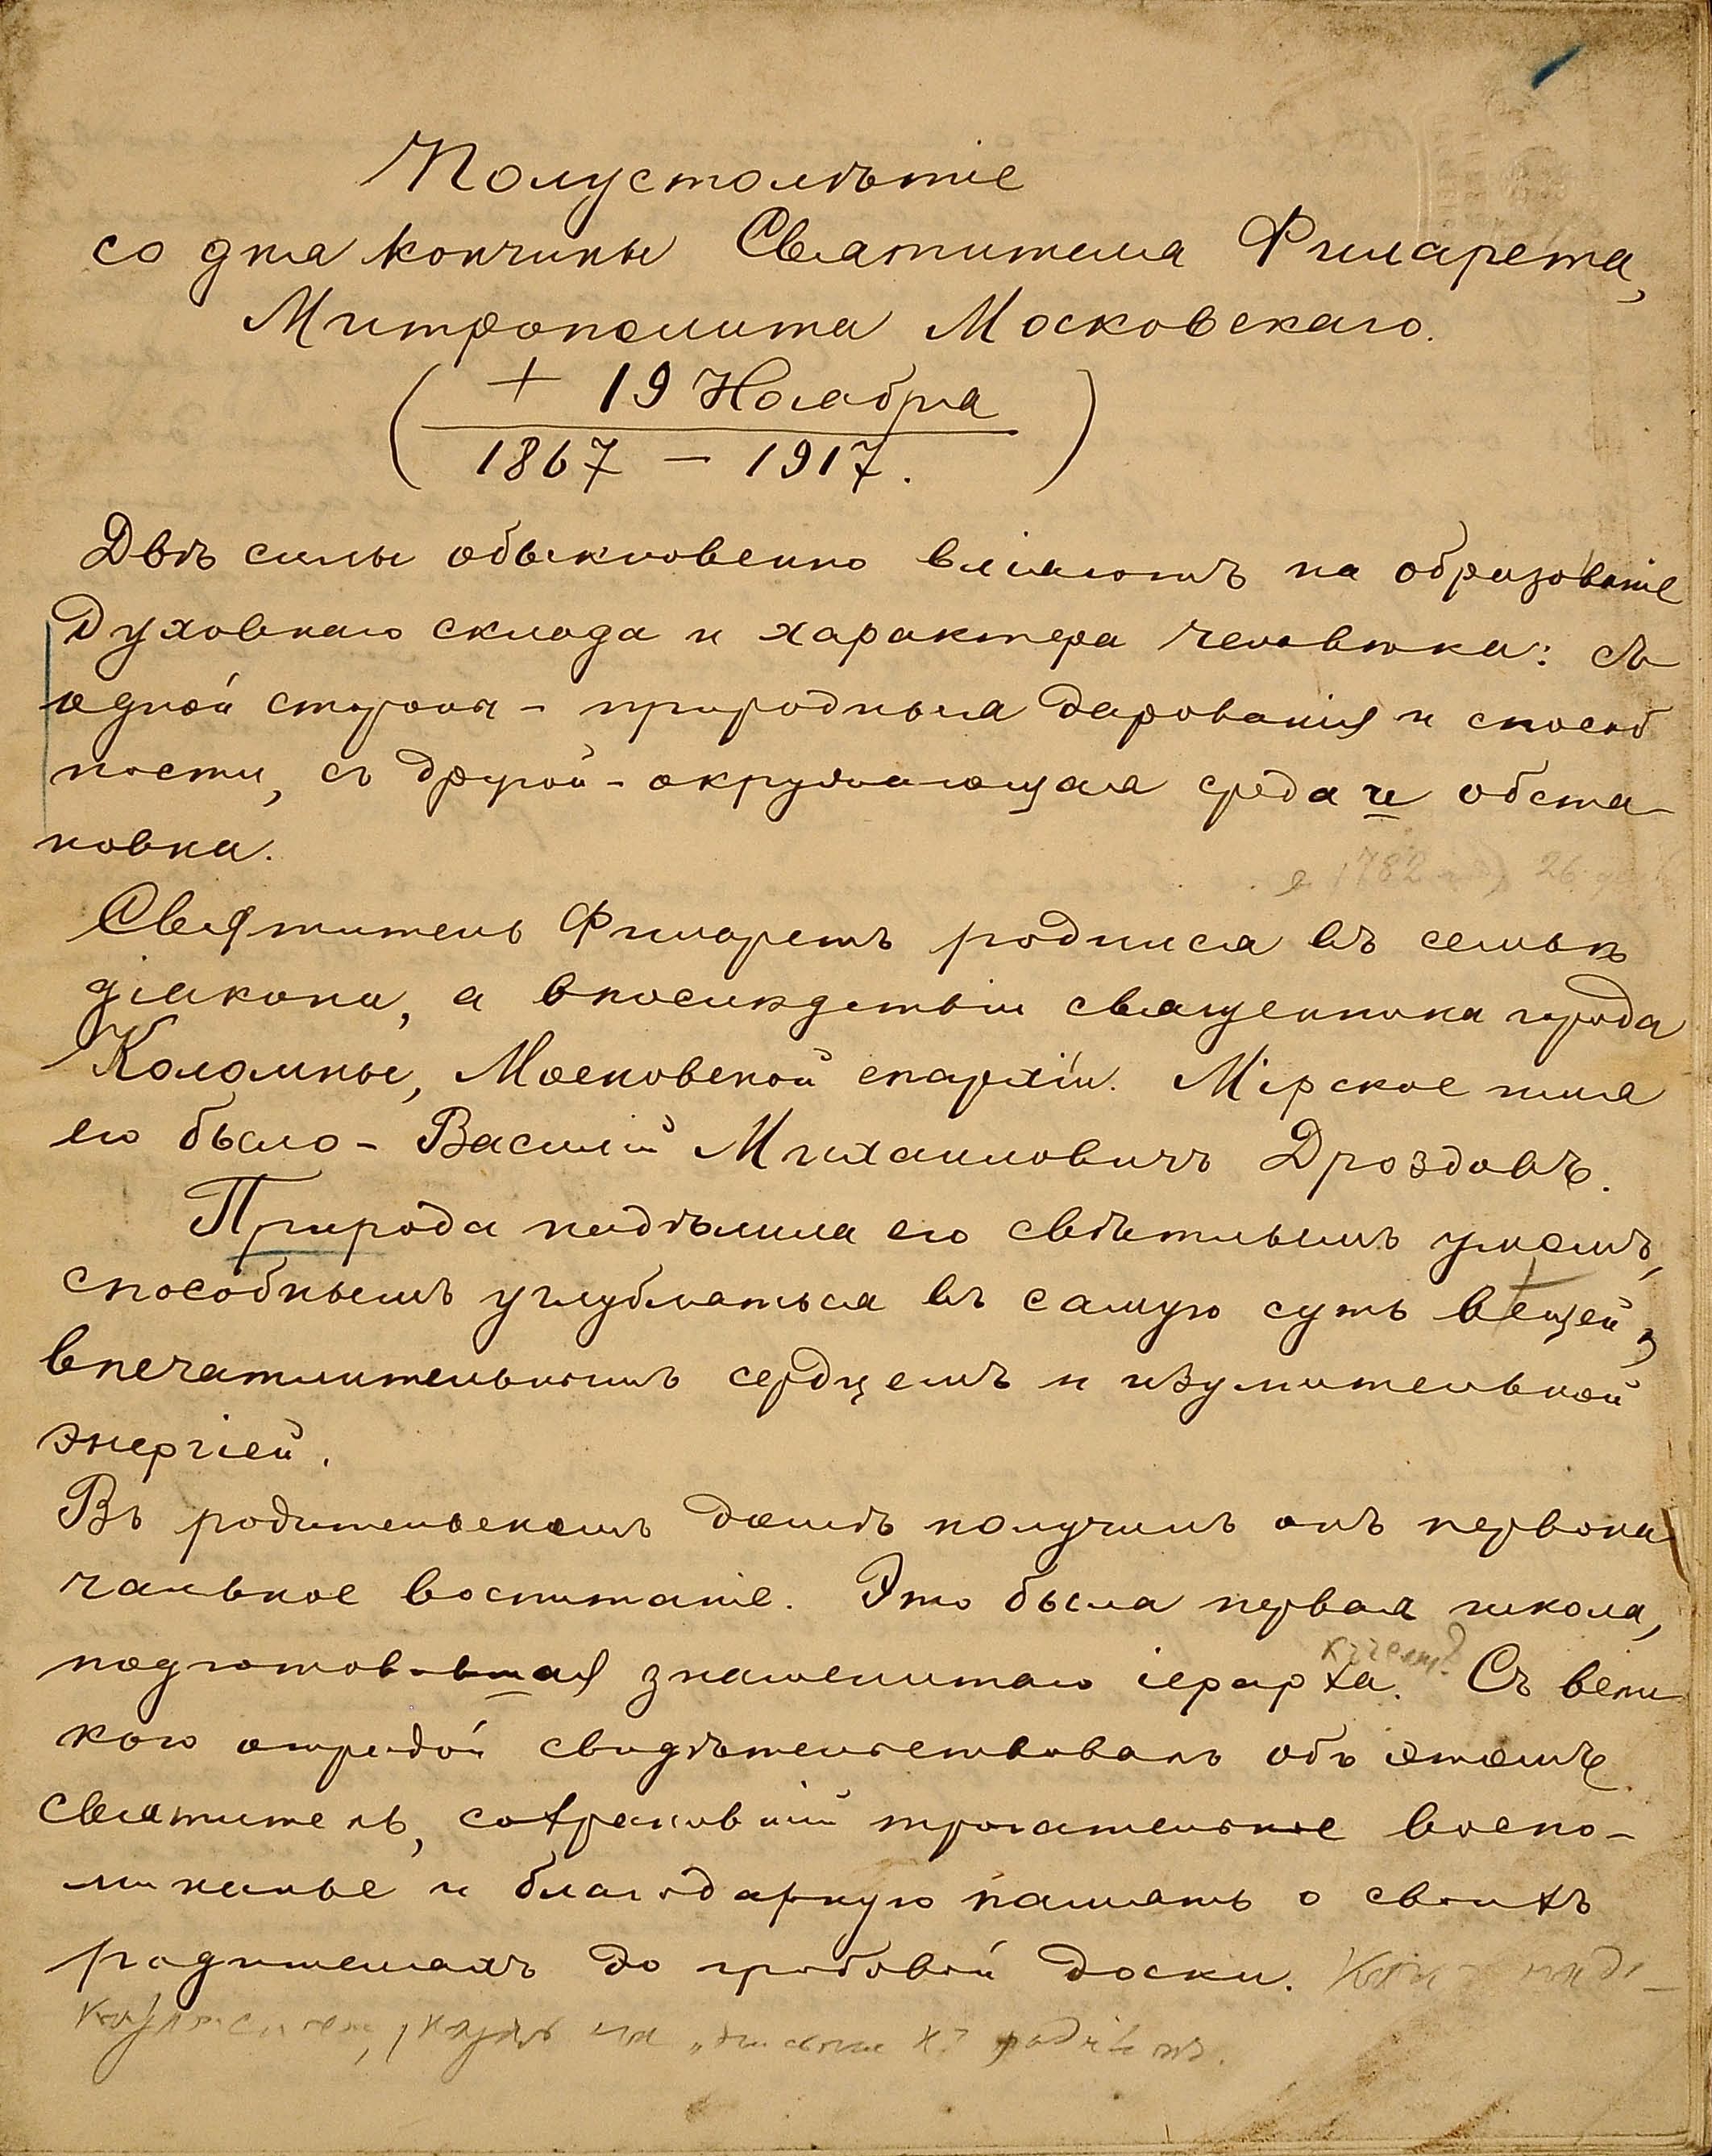 Полустолѣтіе
со дня кончины Святителя Филарета,
Митрополита Московскаго.
( + 19 Ноября
1867 – 1917. )
Двѣ силы обыкновенно вліяютъ на образованіе
духовнаго склада и характера человѣка: съ
одной стороны – природныя дарованія и способ
ности, съ другой – окружающая среда и обста-
новка.
1782 26
Святитель Филаретъ родился въ семьѣ
діакона, а впослѣдствіи священника города
Коломны, Московской епархіи. Мірское имя
его было – Василій Михаиловичъ Дроздовъ.
Природа надѣлила его свѣтлымъ умомъ,
способнымъ углубляться въ самую суть вещей,
впечатлительнымъ сердцемъ и изумительной
энергіей.
Въ родительскомъ домѣ получилъ онъ первона
чальное воспитаніе. Это была первая школа,
подготовившая знаменитаго іерарха. Съ вели
кою отрадой свидѣтельствовалъ объ этомъ
святитель, сохранившій трогательное воспо-
минанье и благодарную память о своихъ
родителяхъ до гробовой доски.